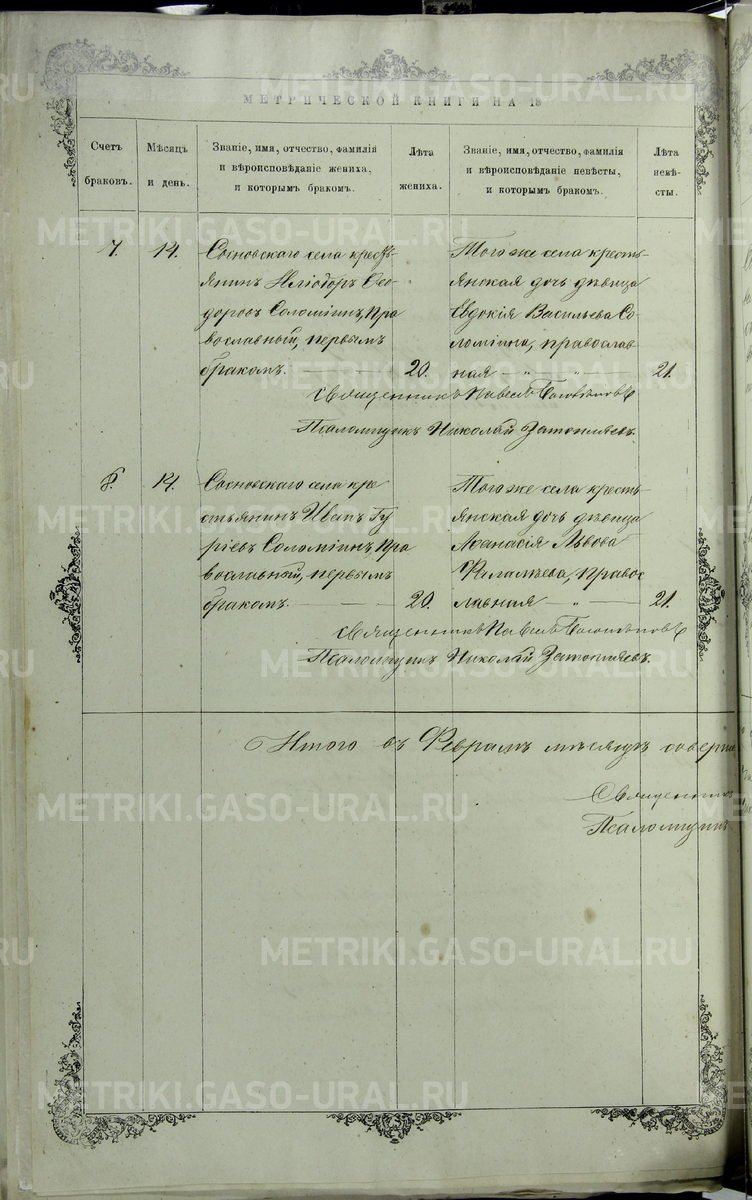 МЕТРИЧЕСКОЙ КНИГИ НА 18
Счетъ браковъ.
Мѣсяцъ и день.
Званіе, имя, отчество, фамилія и вѣроисповѣданіе жениха, и которымъ бракомъ.
Лѣта жениха.
Званіе, имя, отчество, фамилія и вѣроисповѣданіе невѣсты, и которымъ бракомъ.
Лѣта невѣсты.
7. 14. Сосновскаго села кресть-
янинъ Иліодоръ Ѳео-
доровъ Соломинъ, пра
вославный, первымъ
бракомъ. 20.
Того же села кресть-
янская дочь дѣвица
Евдокія Васильева Со-
ломина, православ-
ная 21.
Священникъ Павелъ
Псаломщикъ Николай
8. 14. Сосновскаго села кре
стьянинъ Иванъ Гу
ріевъ Соломинъ, пра
вославный, первымъ
бракомъ. 20.
Того же села кресть-
янская дочь дѣвица
Аѳанасія Львова
Филалѣева, правос
лавная 21.
Священникъ Павелъ
Псаломщикъ Николай
Итого въ Февралѣ мѣсяцѣ соверш
Священник
Псаломщик
METRIKI.GASO-URAL.RU